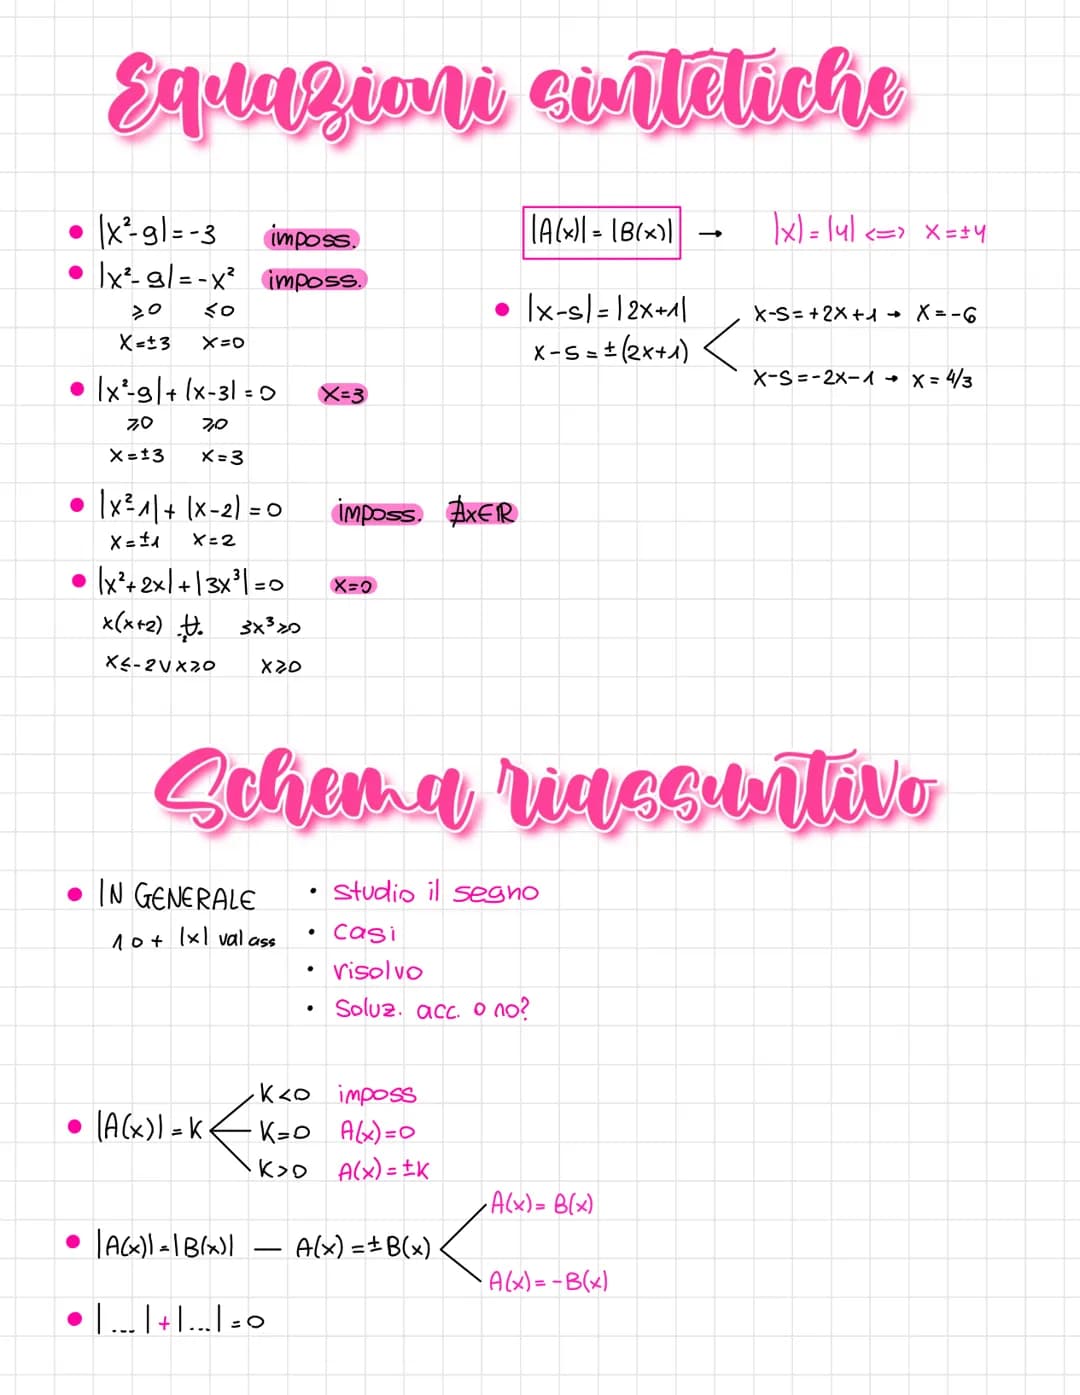 Equazioni sintetiche
• |x²-9|=-3 imposs.
• |x²-9|=-x² imposs.
≥0 ≤0
x=±3 x=0
• |x²-9|+|x-3|=0 x=3
≥0 ≥0
x=±3 x=3
• |x²-1|+|x-2|=0 imposs. ∄x∈ℝ
x=±1 x=2
• |x²+2x|+|3x³|=0 x=0
x(x+2) 3x³≥0
x≤-2∨x≥0 x≥0
|A(x)|=|B(x)| → |x|=|y| <=> x=±y
• |x-5|=|2x+1|
x-5=±(2x+1)
x-5=+2x+1 → x=-6
x-5=-2x-1 → x=4/3
Schema riassuntivo
• IN GENERALE
1 o + |x| val ass
• studio il segno
• casi
• risolvo
• Soluz. acc. o no?
• |A(x)|=K
K<0 imposs
K=0 A(x)=0
K>0 A(x)=±K
• |A(x)|=|B(x)| — A(x)=±B(x)
A(x)=B(x)
A(x)=-B(x)
• |...|+|...|=0